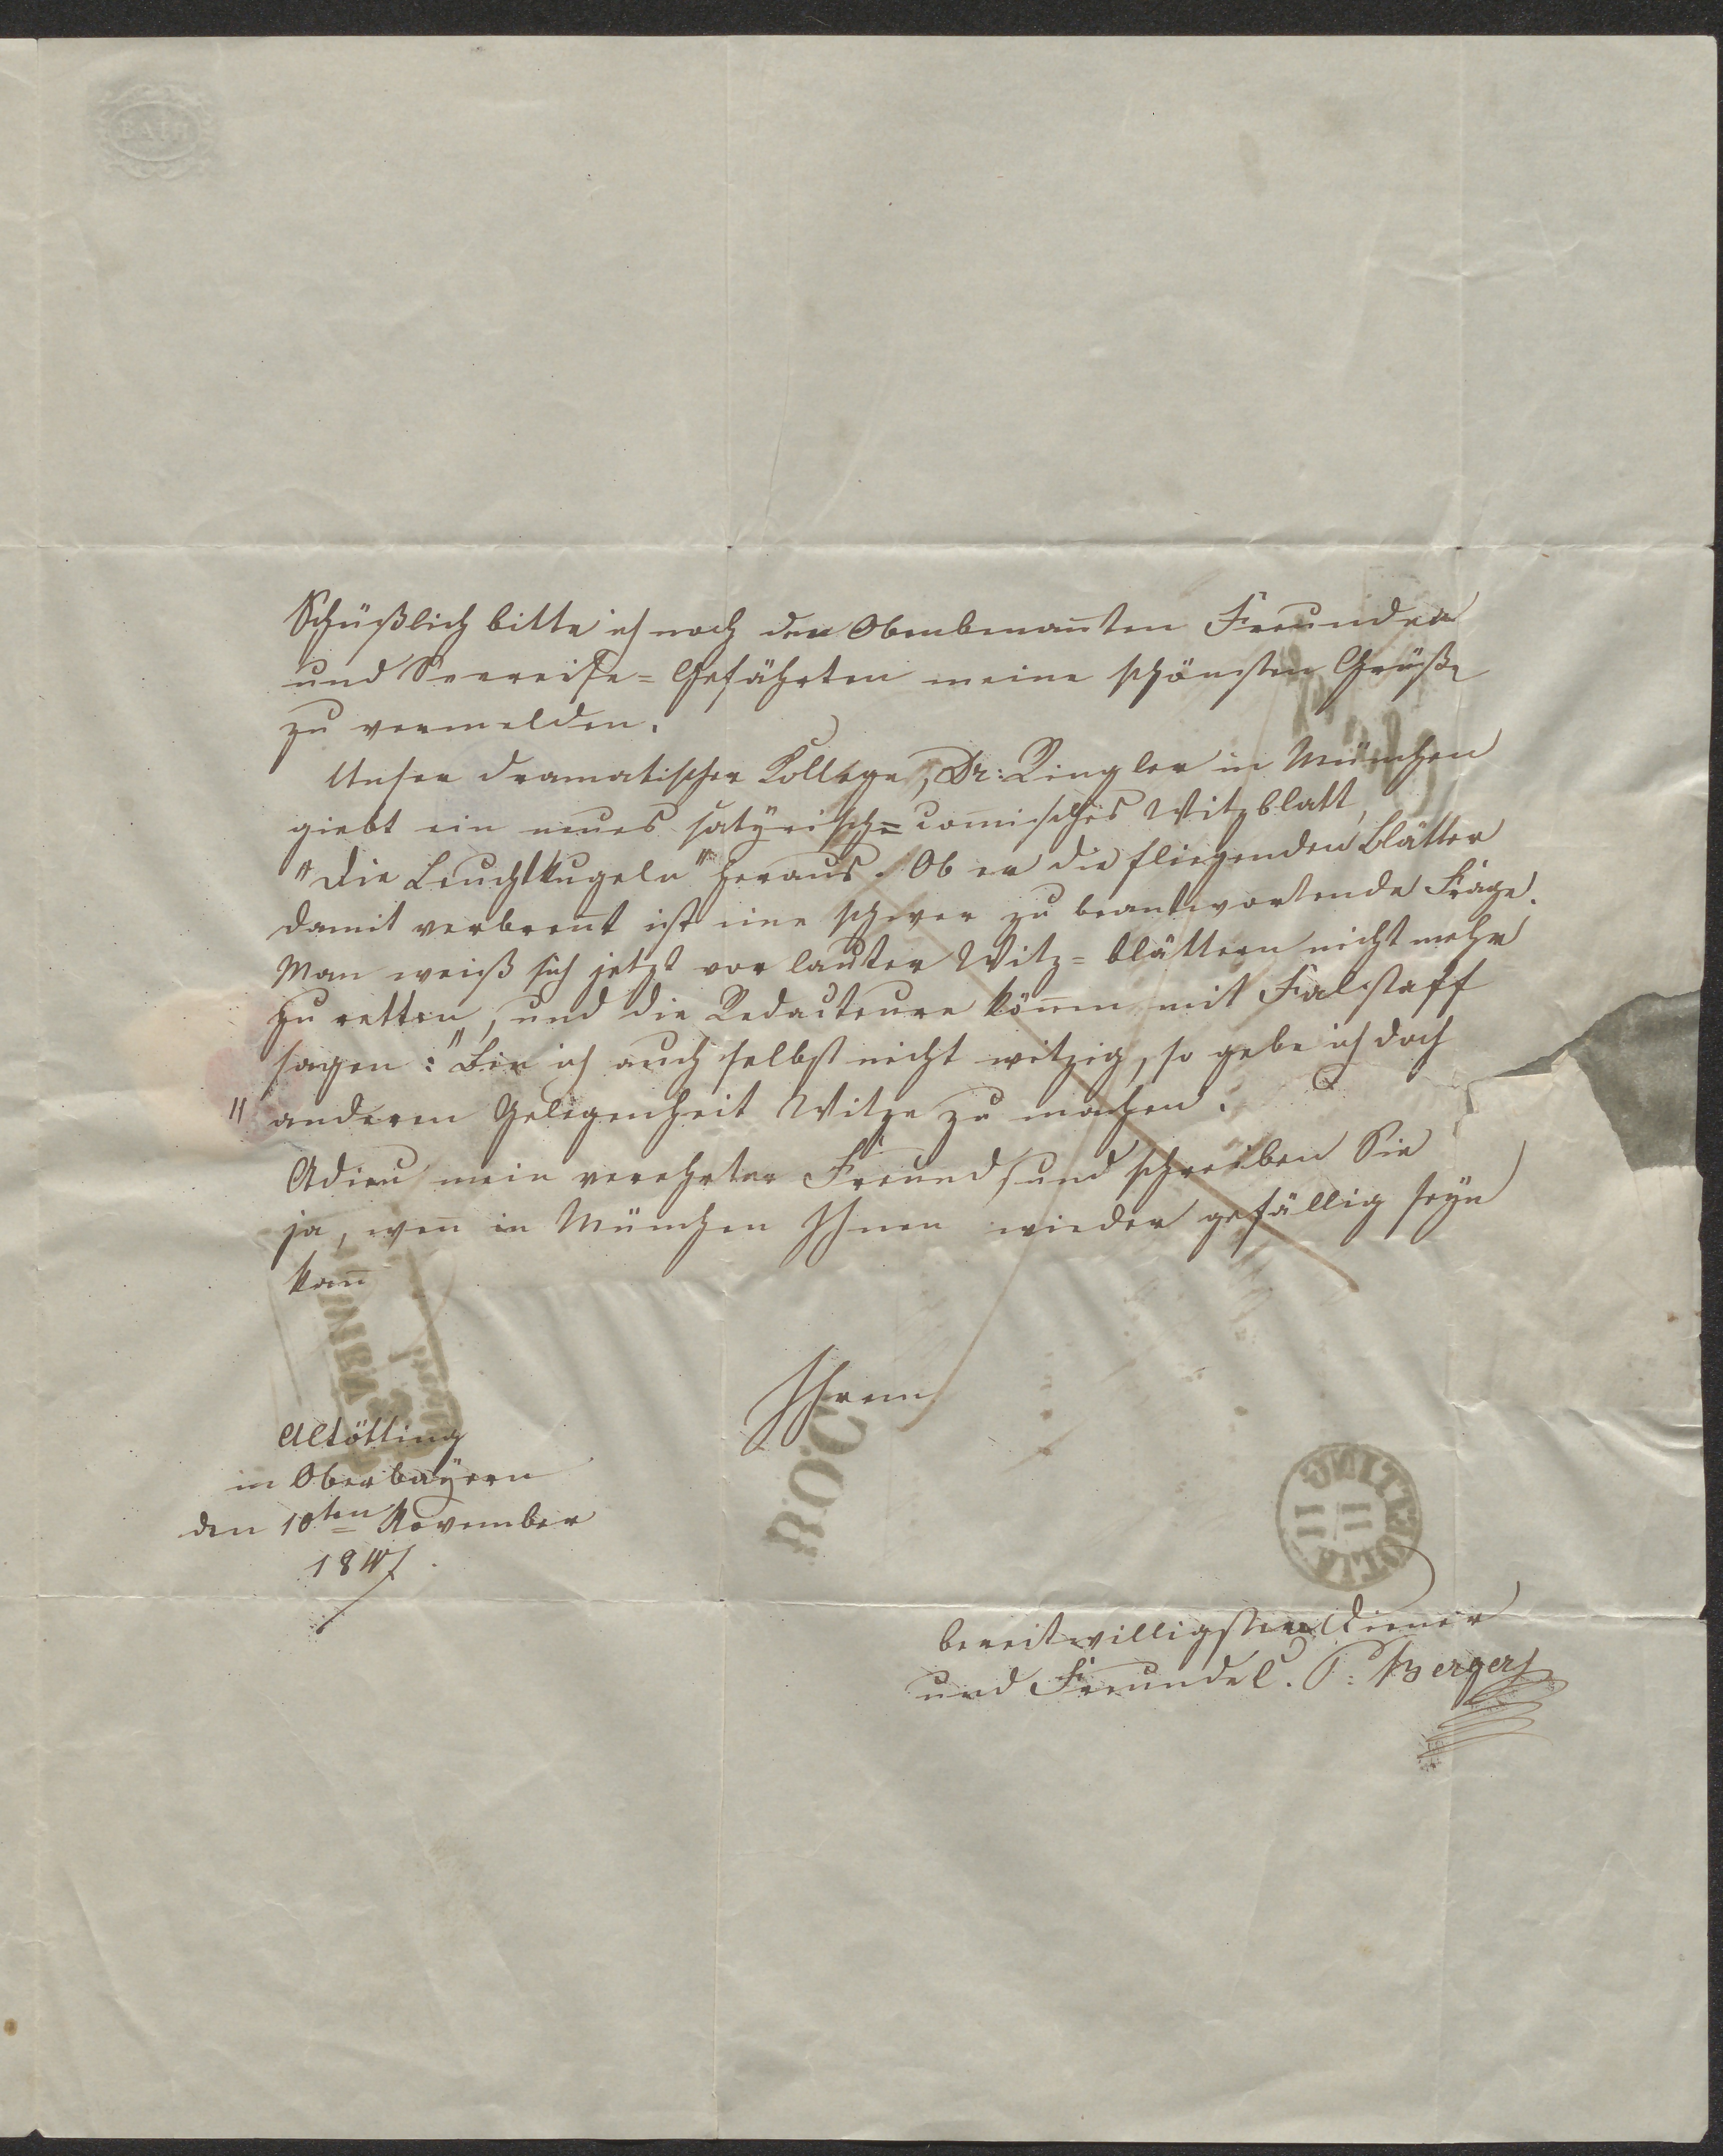 BATH
Schüßlich bitte ich noch den Obenbenan̄ten Freunden
und Seereise=Gefährten meine schönsten Grüße
zu vermelden.
Unser dramatischer Kollege, Dr: Ringler in München
giebt ein neues satÿrisch=comisches Witzblatt,
"Die Leuchtkugeln" heraus. Ob er die fliegenden Blätter
damit verbren̄t ist eine schwer zu beantwortende Frage.
Man weiß sich jetzt vor lauter Witz=blättern nicht mehr
zu retten, und die Redacteure kön̄en mit Falstaff
sagen: "Bin ich auch selbst nicht witzig, so gebe ich doch
" anderen Gelegenheit Witze zu machen.
Adieu mein verehrter Freund, und schreiben Sie
ja, wen̄ in München Ihnen wieder gefällig seÿn
kan̄
Ihrem
Altötting
in Oberbaÿern
den 10ten November
1847.
bereitwilligsten Diener
und Freunde C. P: Berger